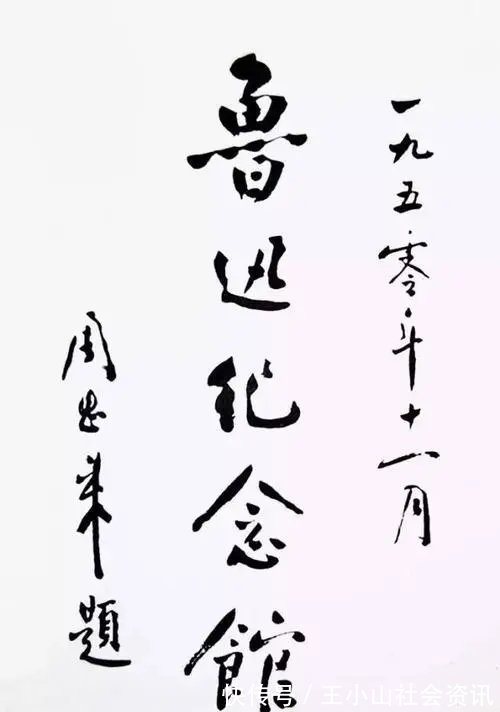 一九五零年十一月
魯迅纪念館
周恩来題
快传号/王小山社会资讯